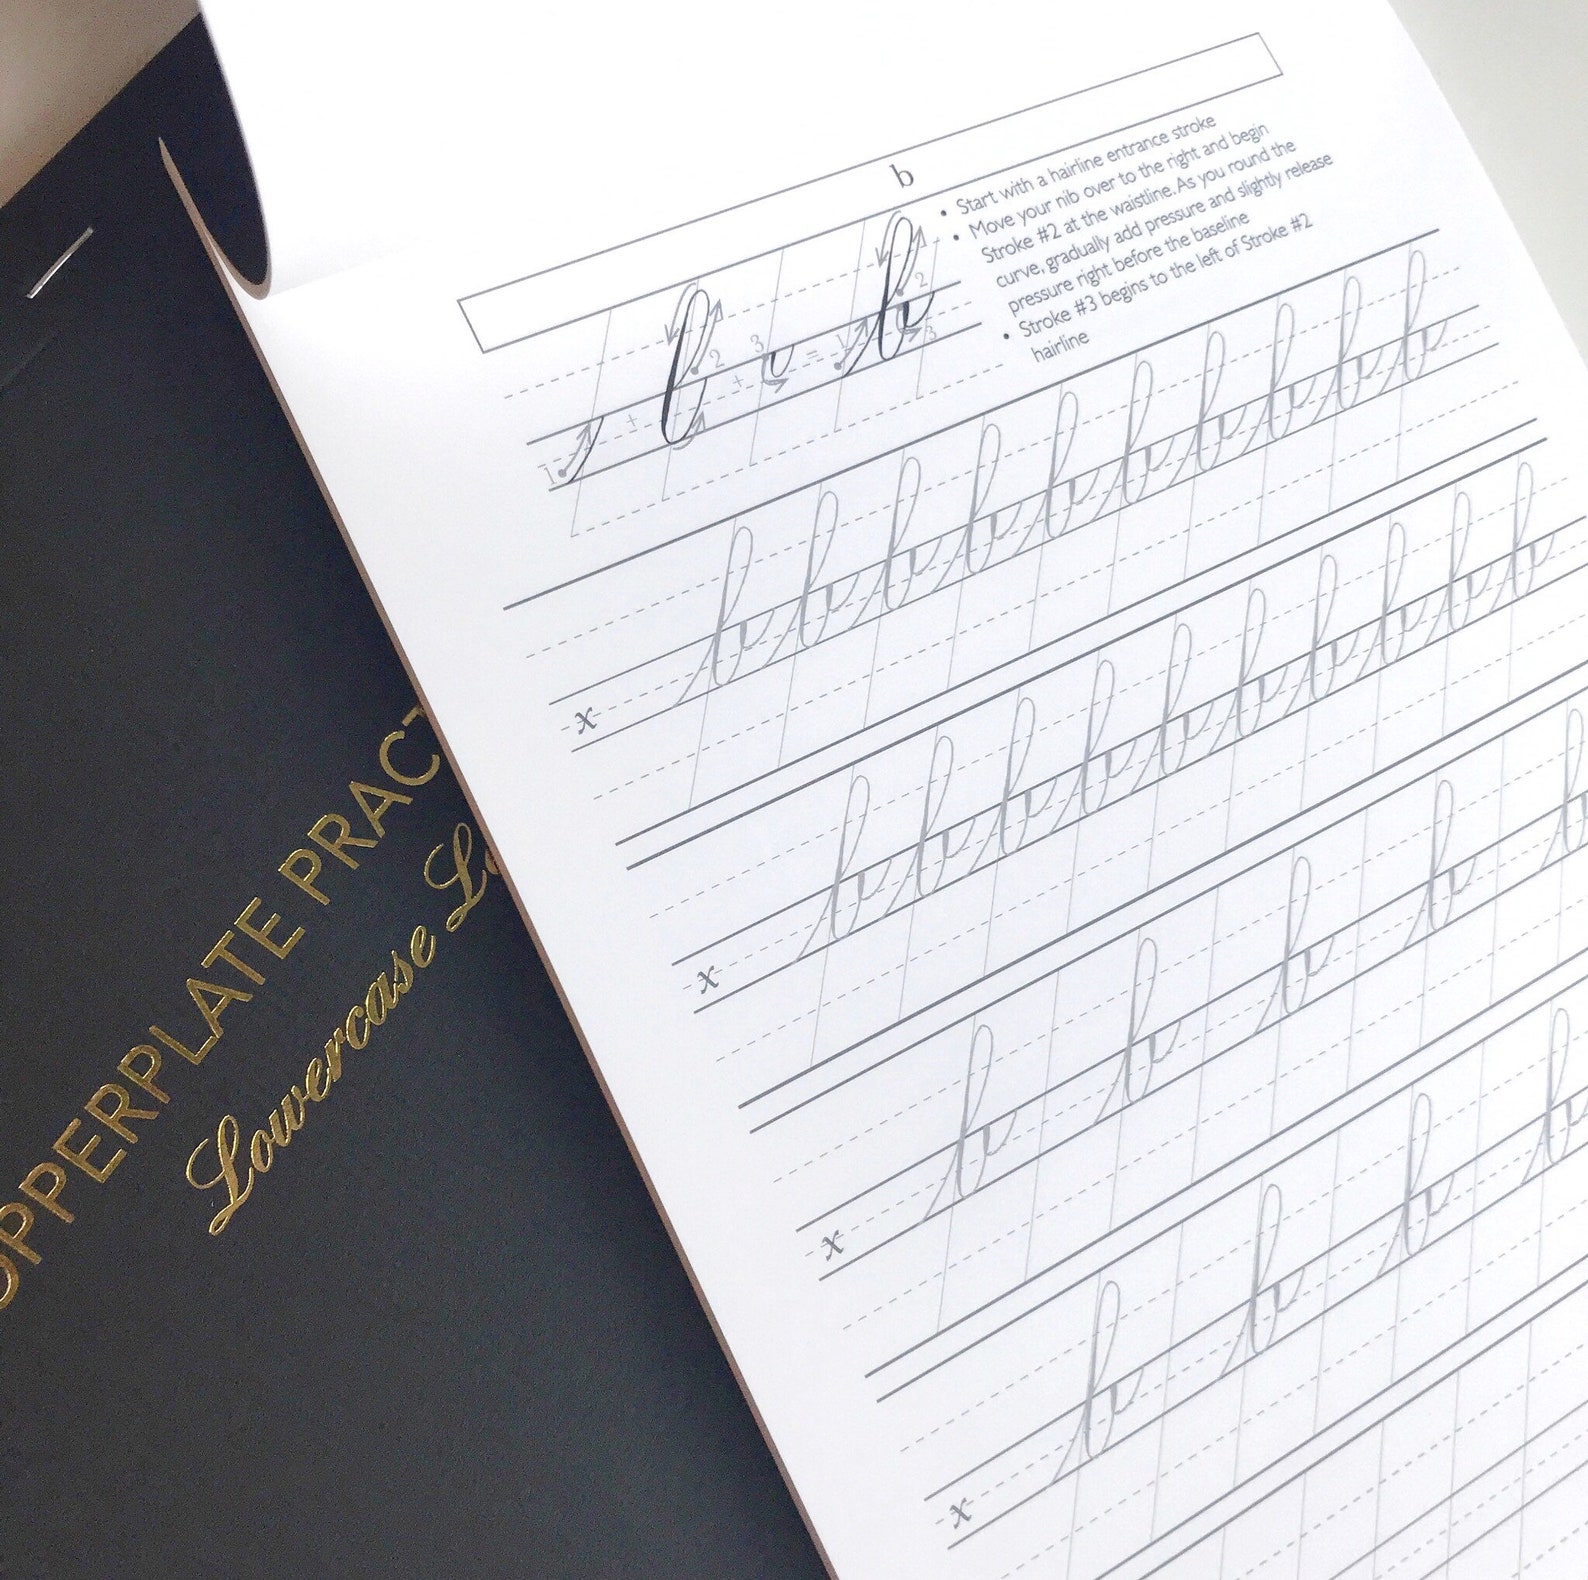 b
• Start with a hairline entrance stroke
• Move your nib over to the right and begin
Stroke #2 at the waistline. As you round the
curve, gradually add pressure and slightly release
pressure right before the baseline
• Stroke #3 begins to the left of Stroke #2
hairline
1 + 2 + 3 = 1 2 3
b b b b b b b b b
x
b b b b b b b b b b
x
b b b b b
x
b b b b
x
OPPERPLATE PRACT
Lowercase Le